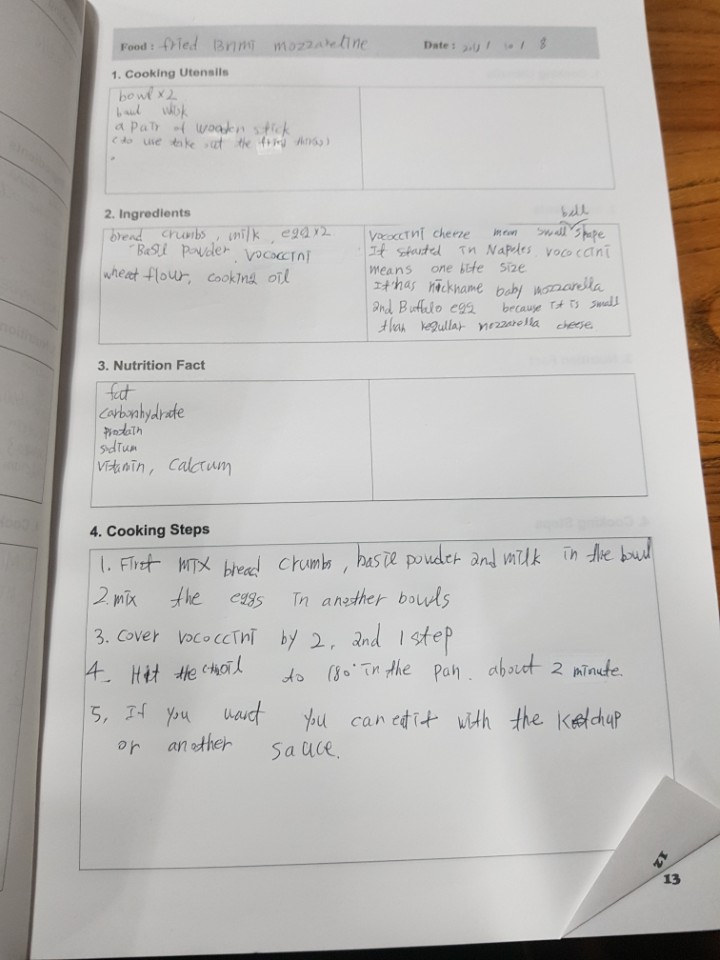 Food : fried Brini mozzareline Date : / 10 / 8
1. Cooking Utensils
bowl x2
a pair of wooden stick
(to use take out the things)
2. Ingredients
bread crumbs, milk, egg x2
Basil powder, Vococcini
wheat flour, cooking oil
ball
Vococcini cheeze mean small shape
It started in Napeles vococcini
means one bite size
It has nickname baby mozzarella
and Buffalo egg because it is small
than regullar mozzarella cheese
3. Nutrition Fact
fat
carbonhydrate
Protain
sidium
Vitamin, Calcium
4. Cooking Steps
1. First mix bread crumbs, basil powder and milk in the bowl
2. mix the eggs in another bowls
3. cover vococcini by 2, and 1 step
4. Hit the oil to 180° in the pan. about 2 minute.
5, If you want you can eat it with the ketchup
or another sauce.
12
13